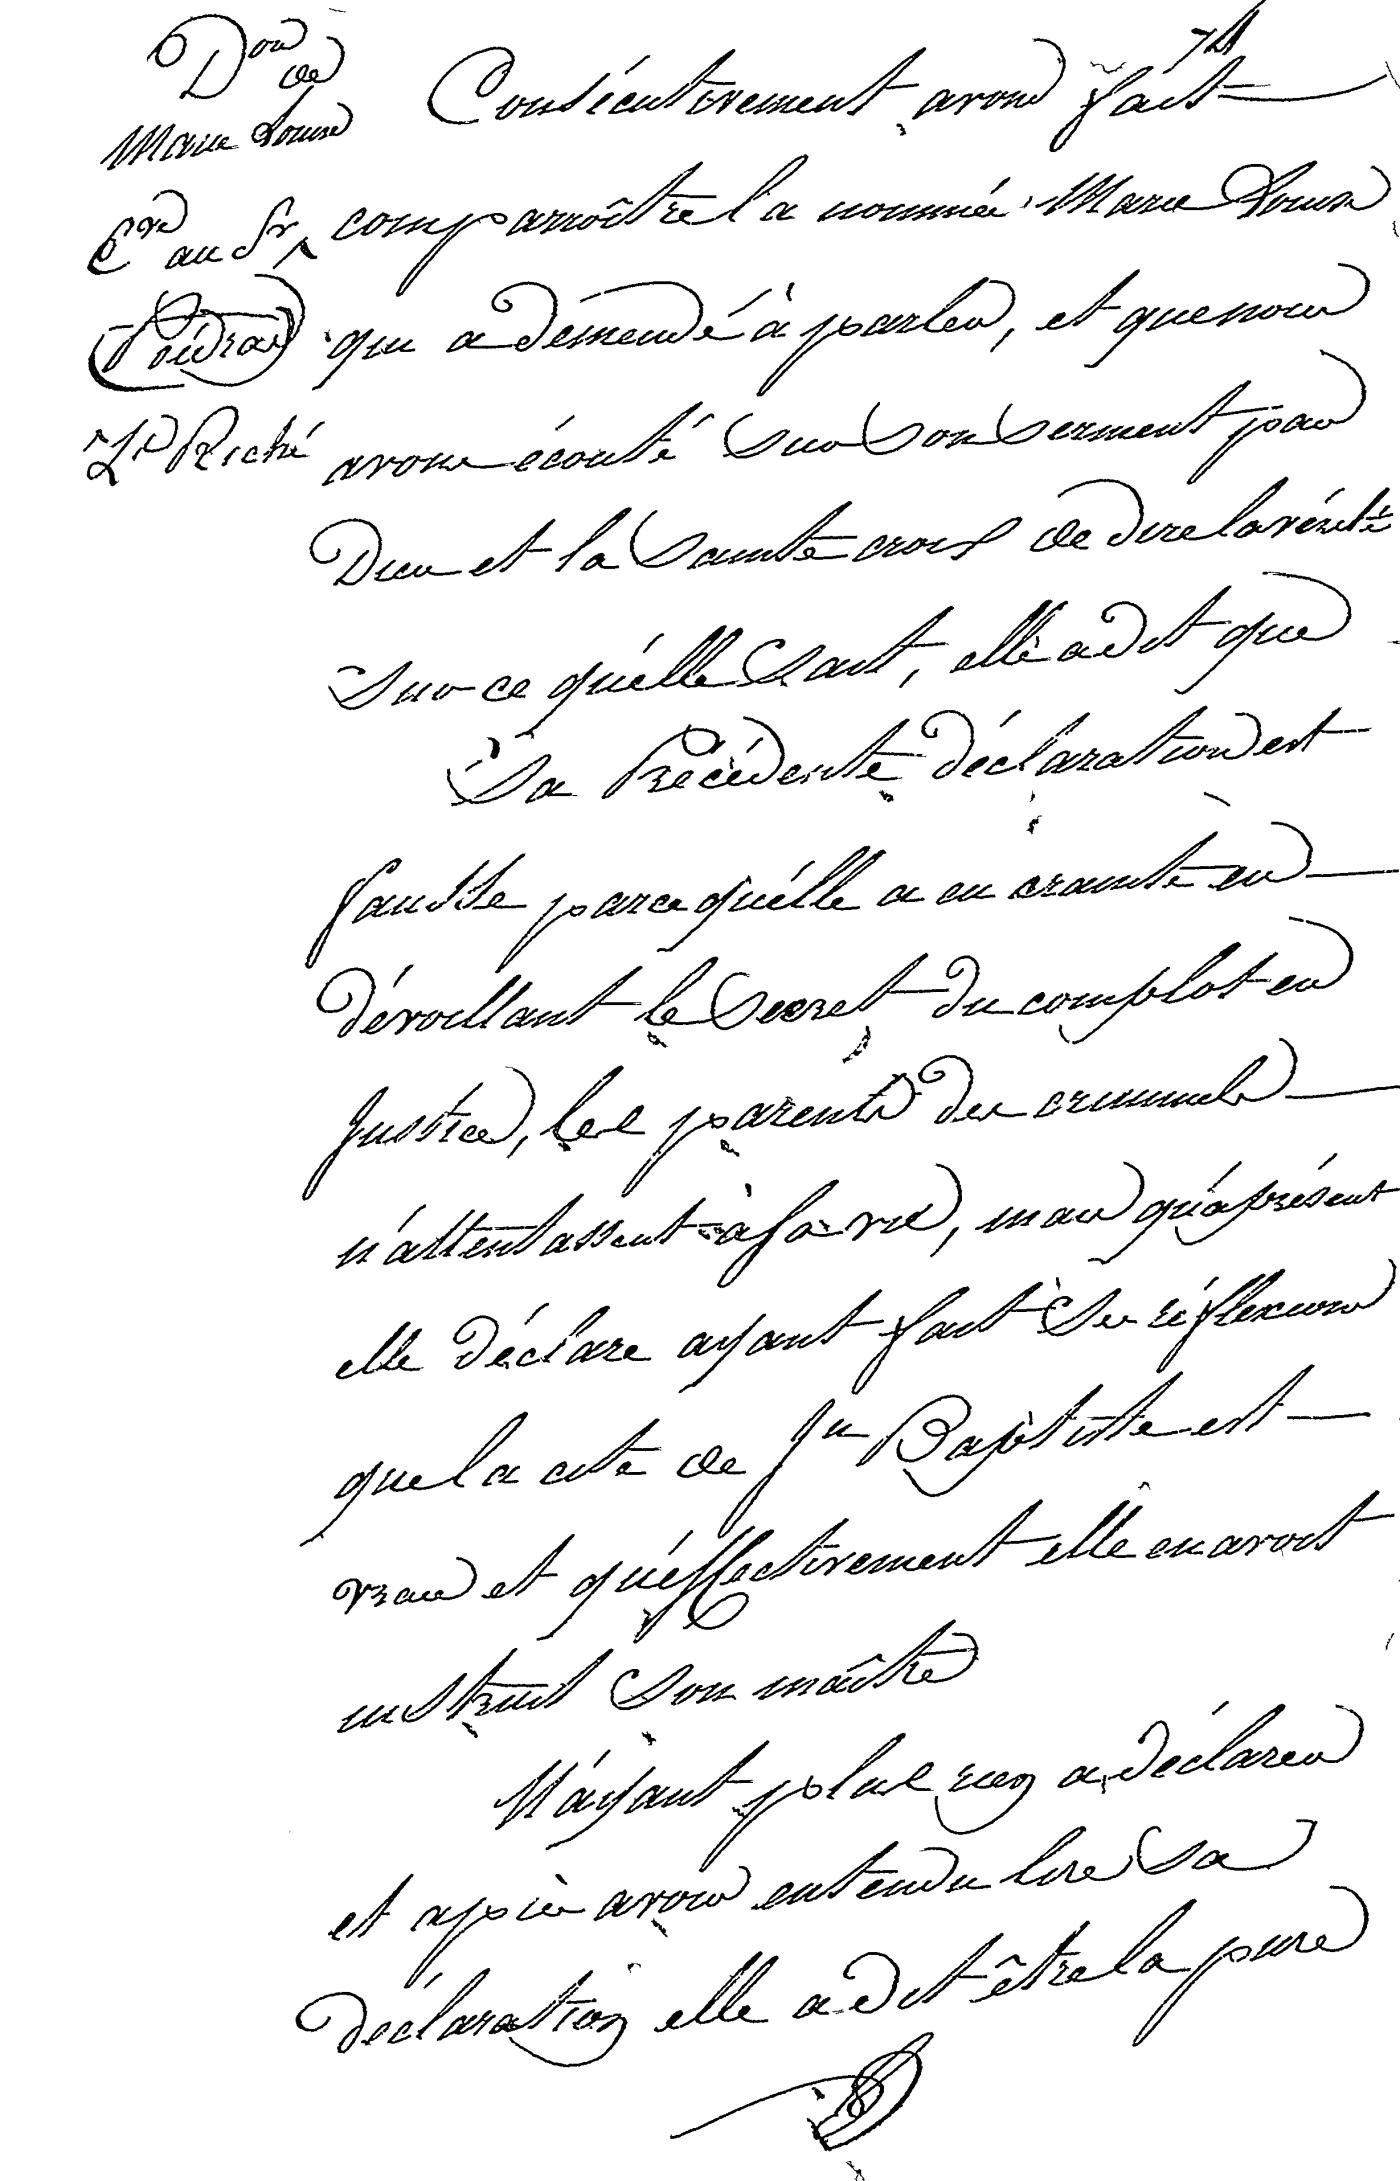 74
Don
de
Marie Louise
Cre au Sr
Poidras
Lt Riché
Consécutivement avons fait
comparroître la nommée Marie Louise
qui a demendé à parler, et que nous
avons écouté sur son serment par
Dieu et la Sainte croix de dire la vérité
sur ce qu'elle sait, elle a dit que
Sa Précédente déclaration est
fausse parce qu'elle a eu crainte en
dévoillant le Secret du complot en
Justice, les parents des criminels
n'attentassent à sa vie, mais qu'aprésent
elle déclare ayant fait ses réflexions
que la cite de Jn Baptiste est
vraie et qu'éffectivement elle en avoit
instruit son maître
N'ayant plus rien a déclarer
et après avoir entendu lire sa
déclaration elle a dit être la pure